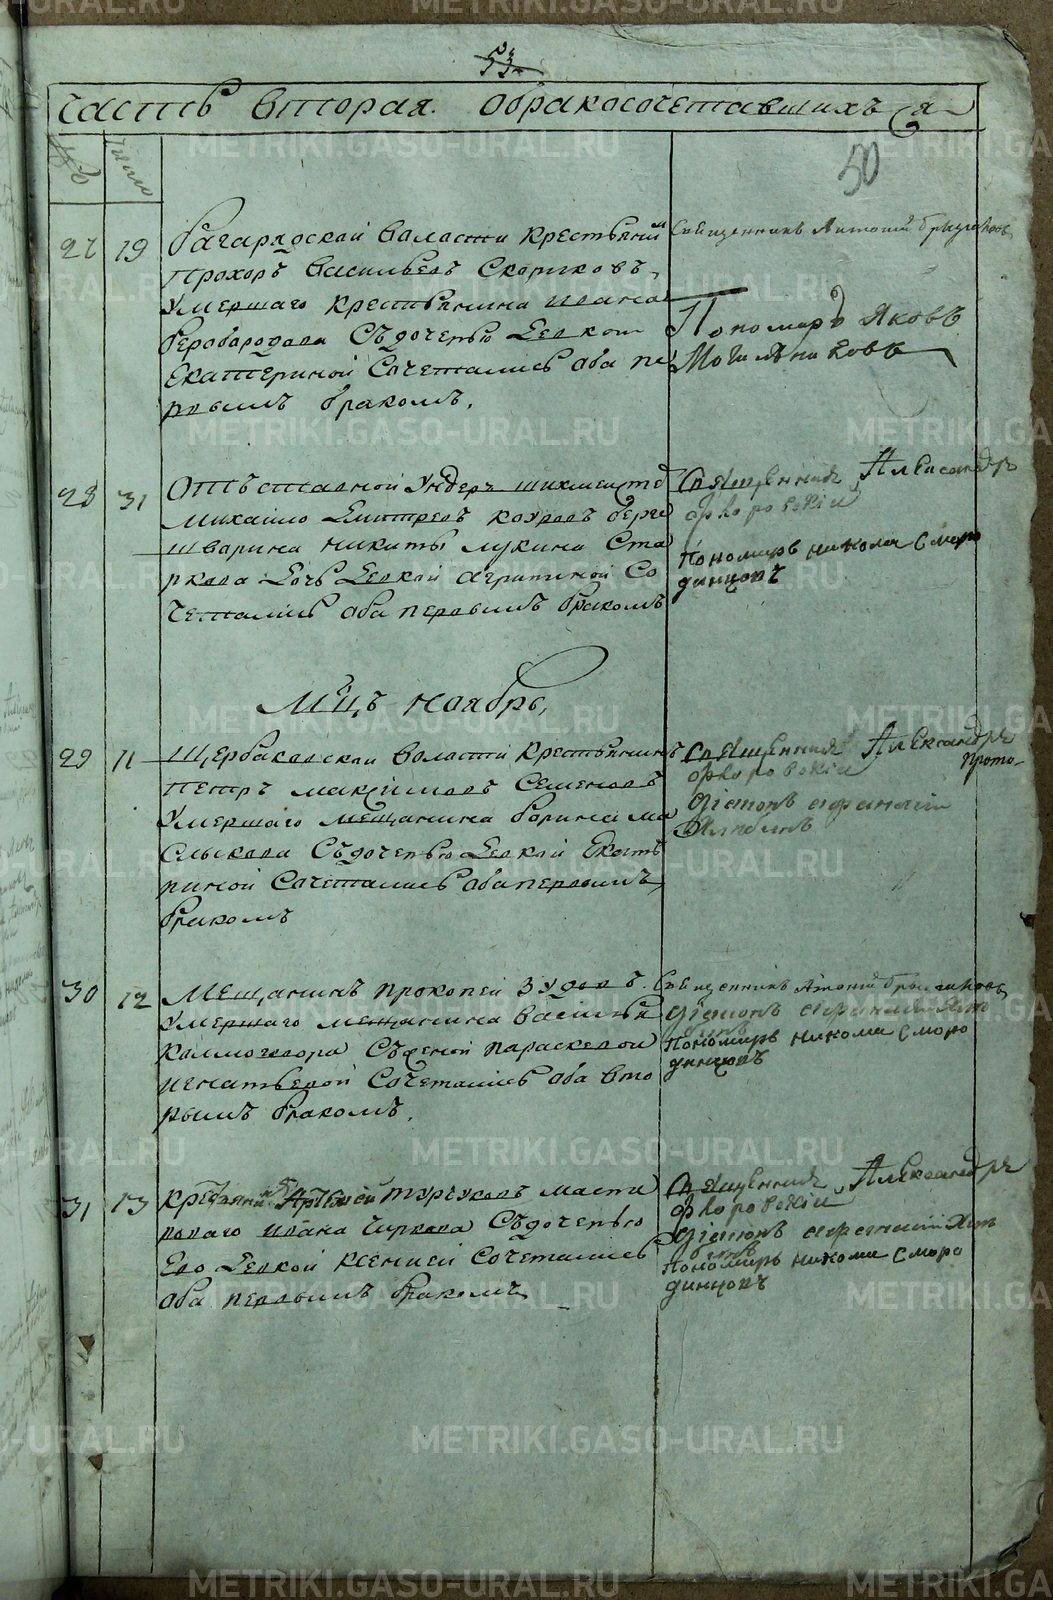 53
часть вторая. обракосочетавшихъ ся
50
число
27 19 Багарядской валасти крестьянинъ
Прохоръ Васильевъ Скориковъ
умершаго крестьянина ивана
Беробародава Съдочерью Девкою
Екатериной Сочетались оба пе
рвымъ бракомъ.
Священникъ Антоний
Пономарь Яковъ
Могильниковъ
28 31 Отъставной ундеръ шихмейстеръ
Михайло Дмитревъ
шварина никиты лукина Ста
ркова Дочь Девкой Агрипиной Со
четались оба первымъ бракомъ
Священник Александръ
флоровский
Пономарь никола Сморо
динцовъ
Мцъ ноябрь,
29 11 Щербаковской валасти крестьянинъ
Петръ максимовъ Семеновъ
умершаго мещанина Ма
слыкова Съдочерью Девкой Екате
риной Сочетались оба первымъ
бракомъ
Священник Александръ
флоровский
диаконъ афанасий
30 12 Мещанинъ прокопей Зудовъ
умершаго мещанина васи
Калмогорова Съженой параскевой
игнатьевой Сочетались оба вто
рымъ бракомъ.
Священникъ Антоний
диаконъ афанасий
Пономарь никола Сморо
динцовъ
31 13 крестьянинъ Артемей Турчковъ масте
роваго ивана Чиркова Съдочерью
Ево Девкой Ксенией Сочетались
оба первымъ бракомъ
Священник Александръ
флоровский
диаконъ афанасий
Пономарь никола Сморо
динцовъ
METRIKI.GASO-URAL.RU